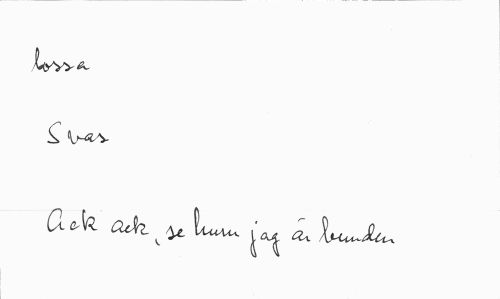 lossa
Svas
Ack ack, se huru jag är bunden